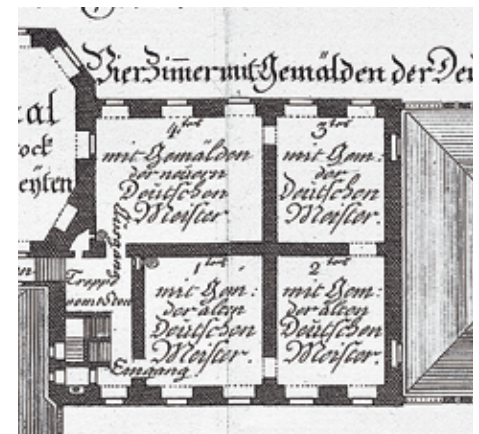 Vier Zimmer mit Gemälden der Deü
al
tock
eÿten
4tes
mit Gemälden
der neüern
Deütschen
Meister.
3tes
mit Gem:
der
Deütschen
Meister.
Ausgang
Treppe
1tes
mit Gem:
der alten
Deütschen
Meister.
2tes
mit Gem:
der alten
Deütschen
Meister.
Eingang.